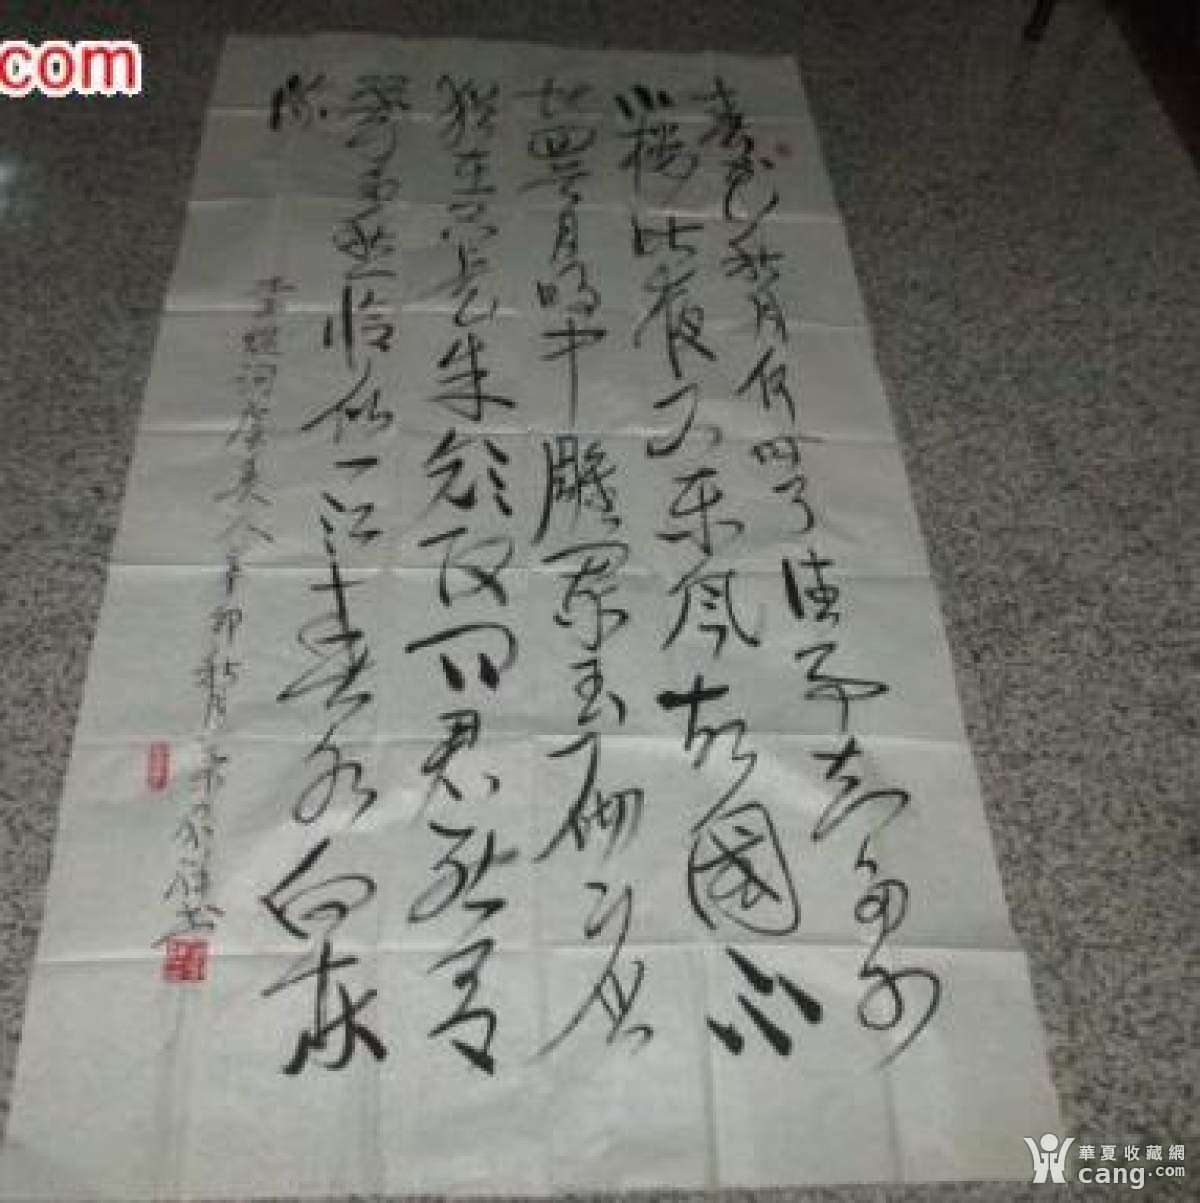 春花秋月何时了往事知多少
小樓昨夜又东風故國不
堪回首月明中雕闌玉砌应
猶在只是朱颜改问君能有
幾多愁恰似一江春水向东
流
李煜词虞美人辛卯秋月
书
com
華夏收藏網
cang.com